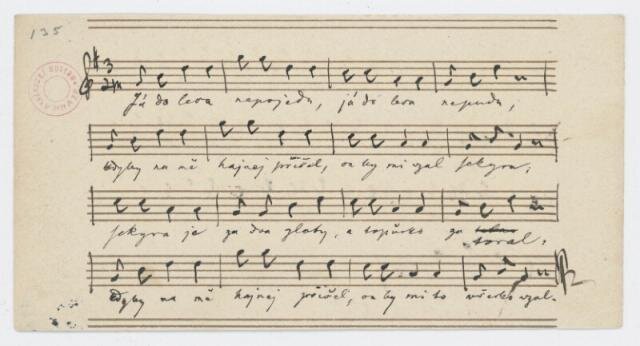 135
Já do lesa nepojedu, já do lesa nepudu,
kdyby na mě hajnej přišel, on by mi vzal sekyru;
sekyra je za dva zlaty, a topůrko za toral;
kdyby na mě hajnej přišel, on by mi to všecko vzal.